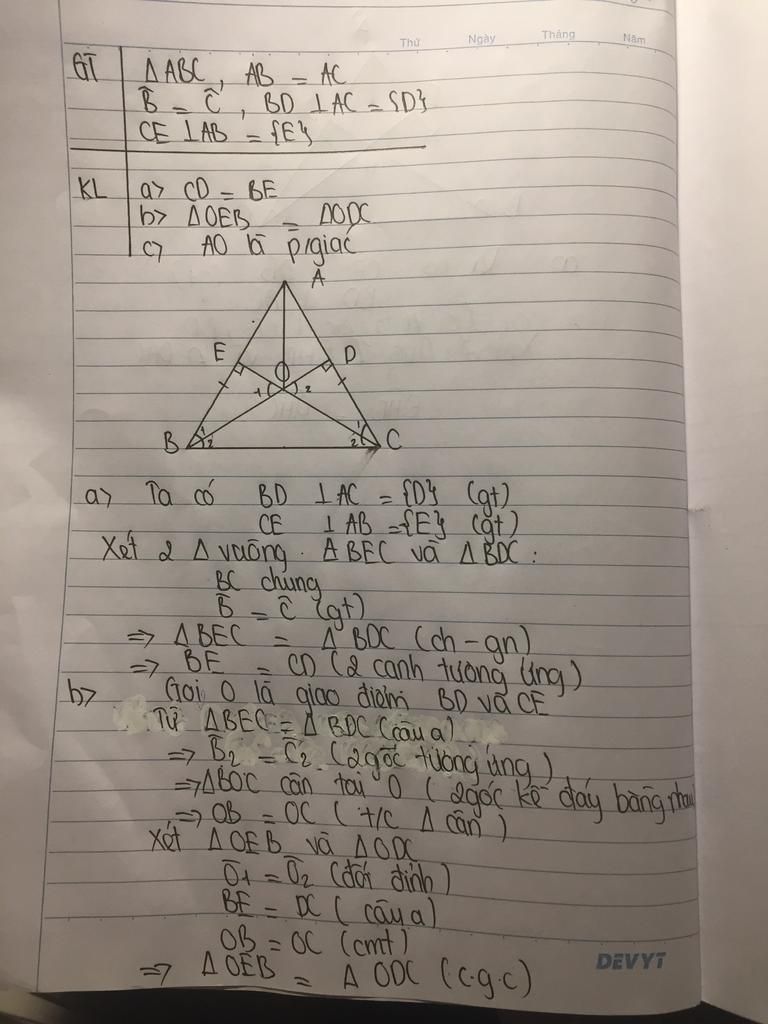 Thứ Ngày Tháng Năm
GT ΔABC, AB = AC
B̂ = Ĉ, BD ⊥ AC = {D}
CE ⊥ AB = {E}
KL a> CD = BE
b> ΔOEB = ΔODC
c> AO là p/giác
A
E D
O
1 2
B 1 2 2 1 C
a> Ta có BD ⊥ AC = {D} (gt)
CE ⊥ AB = {E} (gt)
Xét 2 Δ vuông. ΔBEC và ΔBDC:
BC chung
B̂ = Ĉ (gt)
=> ΔBEC = ΔBDC (ch - gn)
=> BE = CD (2 cạnh tương ứng)
b> Gọi O là giao điểm BD và CE
Từ ΔBEC = ΔBDC (câu a)
=> B̂2 = Ĉ2 (2 góc tương ứng)
=> ΔBOC cân tại O (2 góc kề đáy bằng nhau
=> OB = OC (t/c Δ cân)
Xét ΔOEB và ΔODC
Ô1 = Ô2 (đối đỉnh)
BE = DC (câu a)
OB = OC (cmt)
=> ΔOEB = ΔODC (c.g.c)
DEVYT